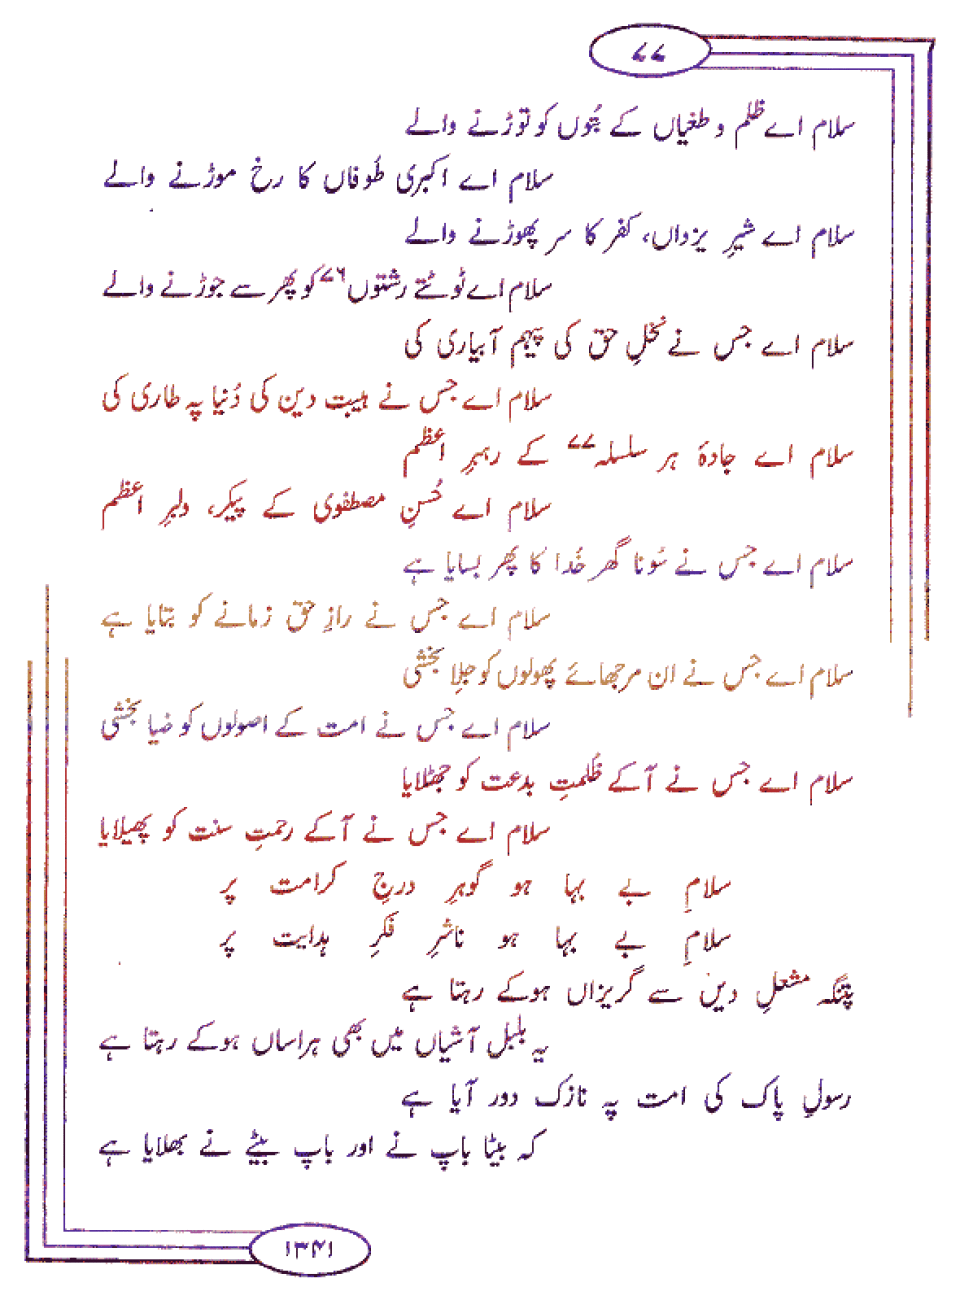 ۷۷
سلام اے ظلم و طغیاں کے بُتوں کو توڑنے والے
سلام اے اکبری طُوفاں کا رخ موڑنے والے
سلام اے شیرِ یزداں، کفر کا سر پھوڑنے والے
سلام اے ٹوٹتے رشتوں۷۶ کو پھر سے جوڑنے والے
سلام اے جس نے نخلِ حق کی پیہم آبیاری کی
سلام اے جس نے ہیبت دین کی دُنیا پہ طاری کی
سلام اے جادۂ ہر سلسلہ۷۷ کے رہبرِ اعظم
سلام اے حُسنِ مصطفوی کے پیکر، دلبرِ اعظم
سلام اے جس نے سُونا گھر خُدا کا پھر بسایا ہے
سلام اے جس نے رازِ حق زمانے کو بتایا ہے
سلام اے جس نے ان مرجھائے پھولوں کو جِلا بخشی
سلام اے جس نے امت کے اصولوں کو ضیا بخشی
سلام اے جس نے آکے ظُلمتِ بدعت کو جھٹلایا
سلام اے جس نے آکے رحمتِ سنت کو پھیلایا
سلامِ بے بہا ہو گوہرِ درجِ کرامت پر
سلامِ بے بہا ہو ناشرِ فکرِ ہدایت پر
پتنگہ مشعلِ دیں سے گریزاں ہوکے رہتا ہے
یہ بلبل آشیاں میں بھی ہراساں ہوکے رہتا ہے
رسولِ پاک کی امت پہ نازک دور آیا ہے
کہ بیٹا باپ نے اور باپ بیٹے نے بھلایا ہے
۱۳۴۱